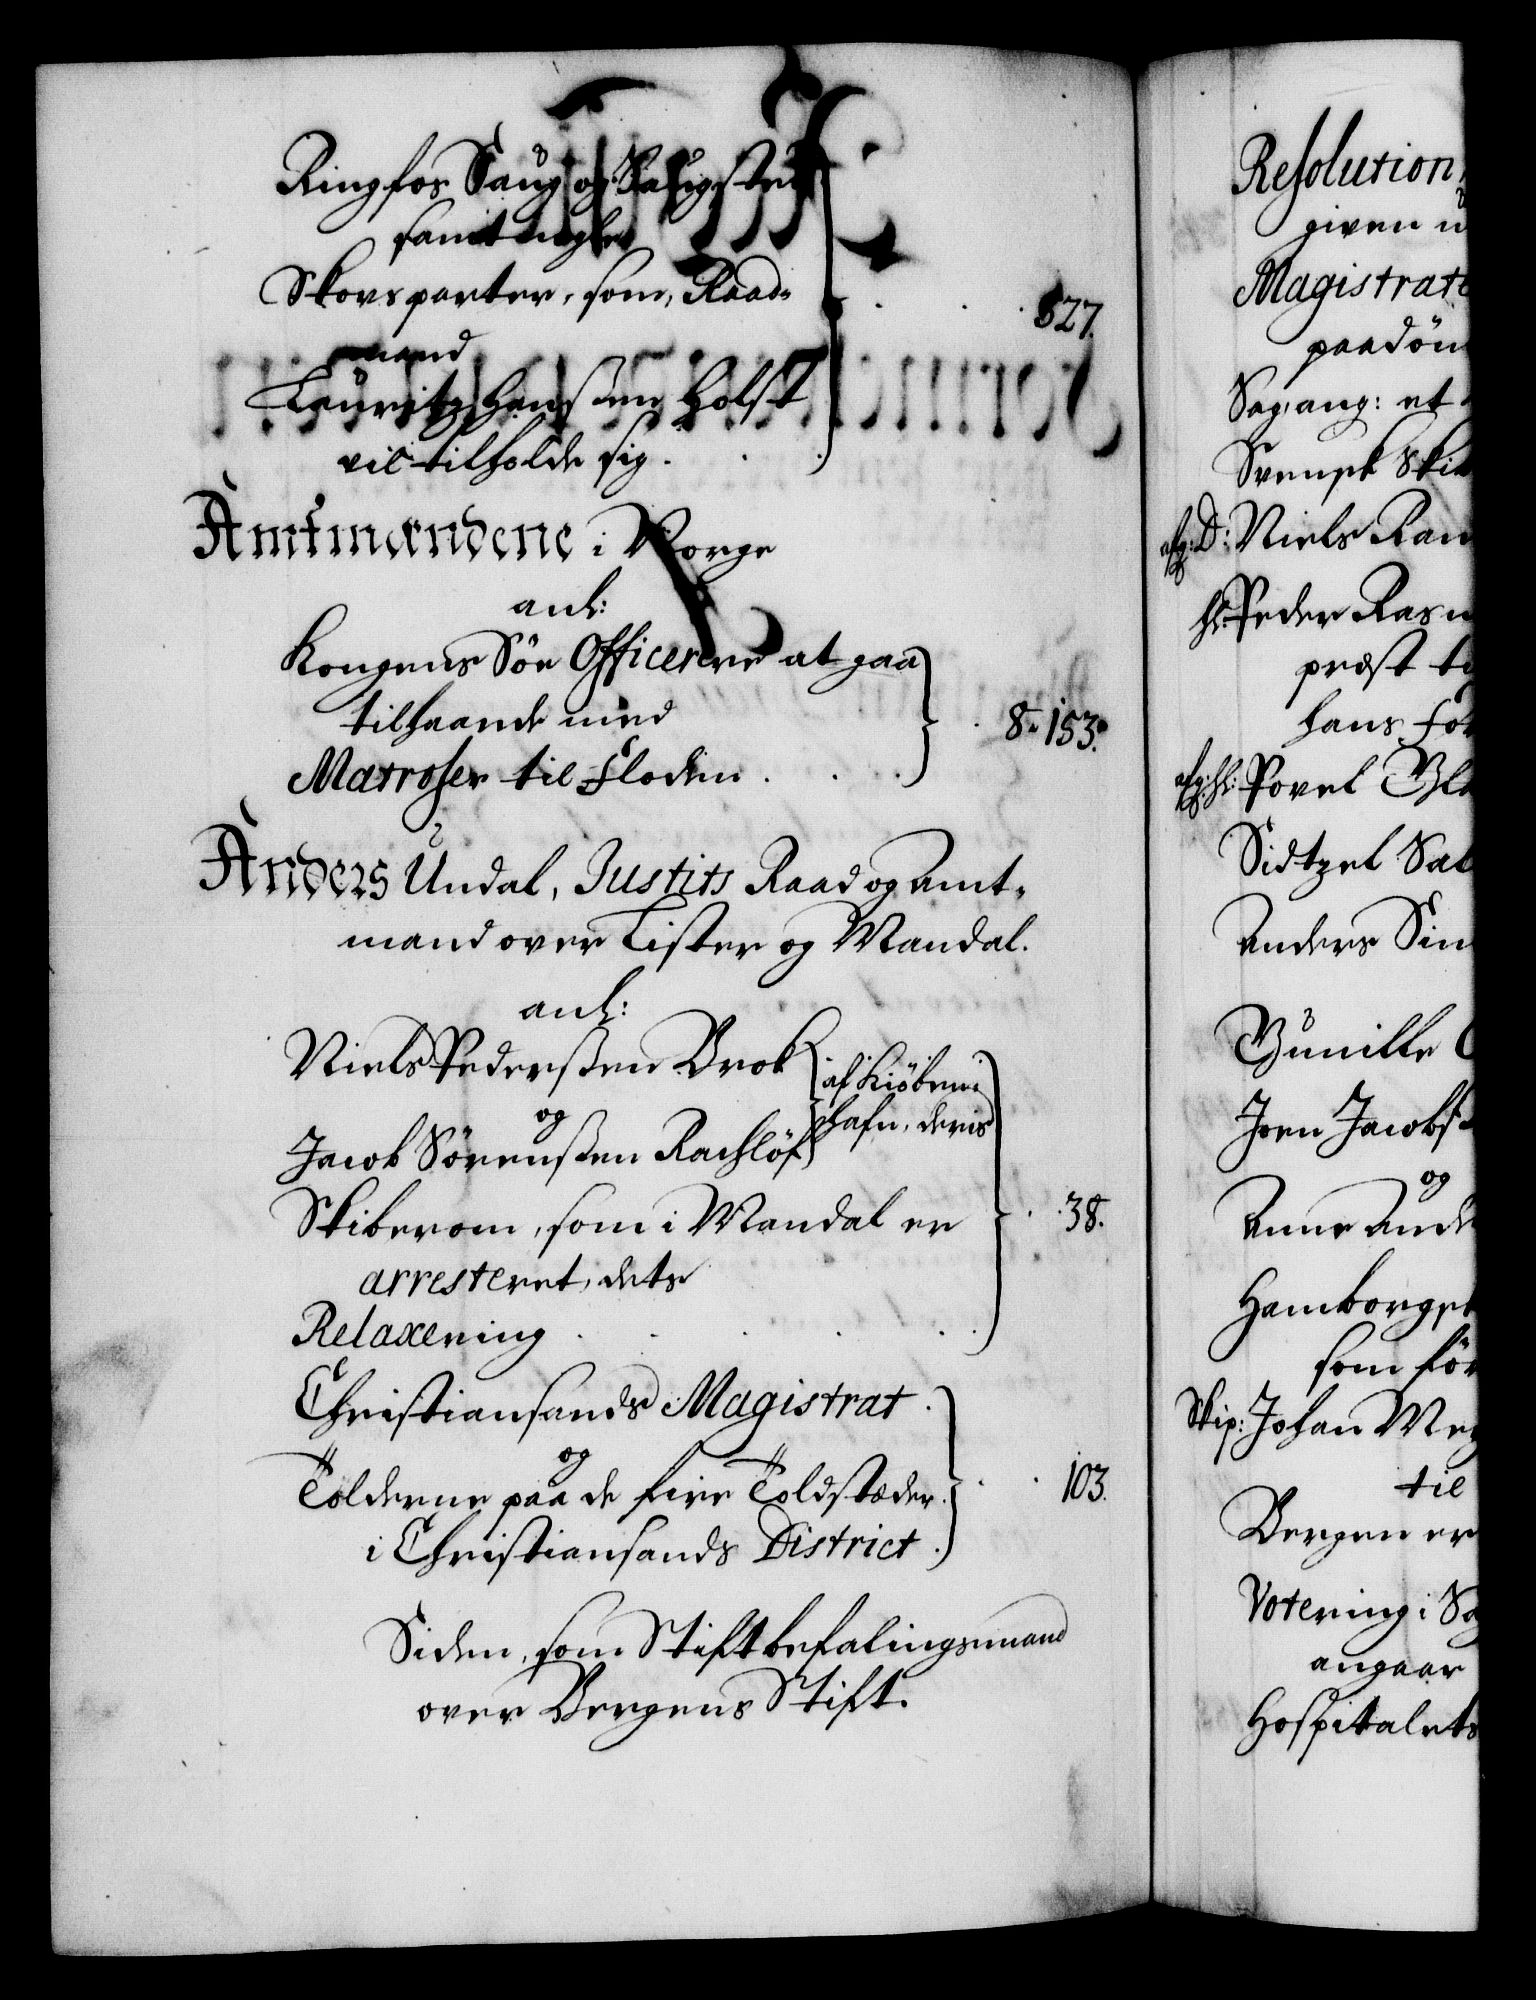 Ringfos Saug og Saugsted
samt nogle
Skovsparter, som, Raad-
mand
Lauritz Hanssen Holst
vil tilholde sig . . . 527.
Amtmændene i Norge
anl:
Kongens Söe Officerere at gaa
tilhaande med
Matroser til Floden . . . 8. 153.
Anders Undal, Justits Raad og Amt-
mand over Lister og Mandal.
anl:
Niels Pederssen Brok
og
Jacob Sörenssen Rachlöf
af Kiöben-
hafn, deris
Skiberom, som i Mandal er
arresteret, dets
Relaxering . . . 38.
Christiansands Magistrat .
og
Tolderne paa de fire Toldstæder . 103.
i Christiansands District .
Siden, som Stiftbefalingsmand
over Bergens Stift.
Resolution
given
Magistrat
paadöm
Sag, ang: et
Svensk Skib
afg: D: Niels Ran
Hr Peder Rasm
præst ti
hans for
afg: Hr: Povel
Sidtzel Sal
Anders Sin
Gunille
Joen Jacobs
og
Anne And
Hamborget
som för
Skip: Johan Mey
til
Bergen er
Votering i Sa
angaar
Hospitalets